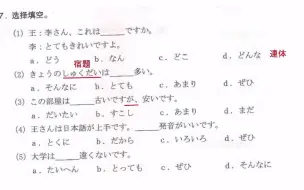 7. 选择填空。
(1) 王:李さん、これは______ですか。
李:とてもきれいですよ。
a. どう b. なん c. どこ d. どんな 連体
宿題
(2) きょうのしゅくだいは______多い。
a. そんなに b. とても c. あまり d. ぜひ
(3) この部屋は______古いですが、安いです。
a. だいたい b. すこし c. あまり d. まだ
(4) 王さんは日本語が上手です。______発音がいいです。
a. とくに b. だから c. いろいろ d. ぜひ
(5) 大学は______遠くないです。
a. たいへん b. とっても c. ぜひ d. そんなに